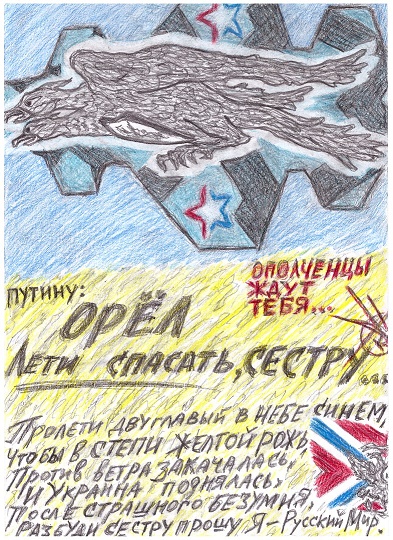 ОПОЛЧЕНЦЫ
ЖДУТ
ТЕБЯ...
ПУТИНУ:
ОРЁЛ
Лети СПАСАТЬ, СЕСТРУ...
Пролети двуглавый в небе синем,
Чтобы в степи желтой рожь
Против ветра закачалась,
И Украина поднялась
После страшного безумия,
Разбуди сестру прошу Я – Русский Мир.